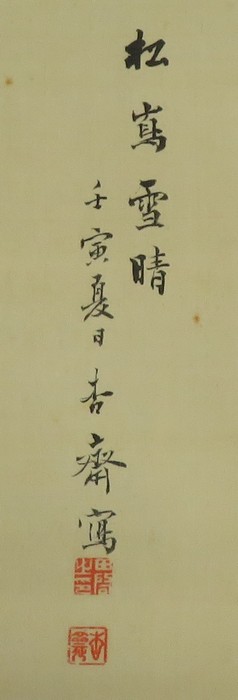 松嶌雪晴
壬寅夏日杏齋寫